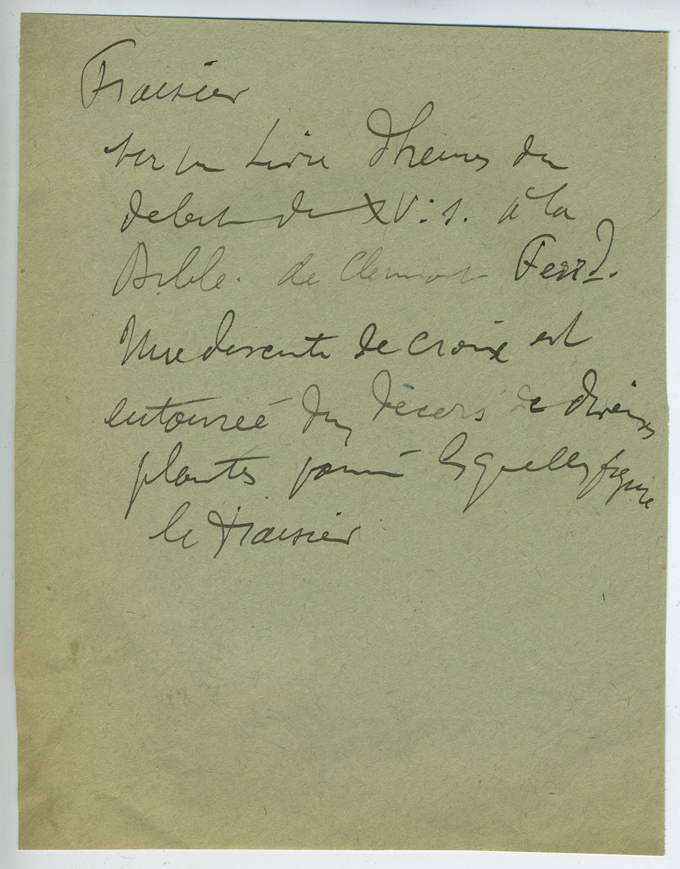 Fraisier
sur un Livre d'heures du
debut du XVe s. à la
Bible. de Clermont Ferrd.
Une descente de croix est
entourée d'un décors de diverses
plantes parmi lesquelles figure
le Fraisier